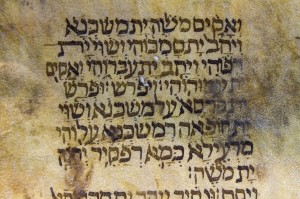 ואקים משה ית משכנא
ויהב ית סמכוהי ושוי ית
דפוהי ויהב ית עברוהי ואקים
ית עמודוהי: ויפרש: ופרס
ית פרסא על משכנא ושוי
ית חופאה דמשכנא עלוהי
מלעילא כמא דפקיד
ית משה:
ויקח: ונסיב ויהב ית